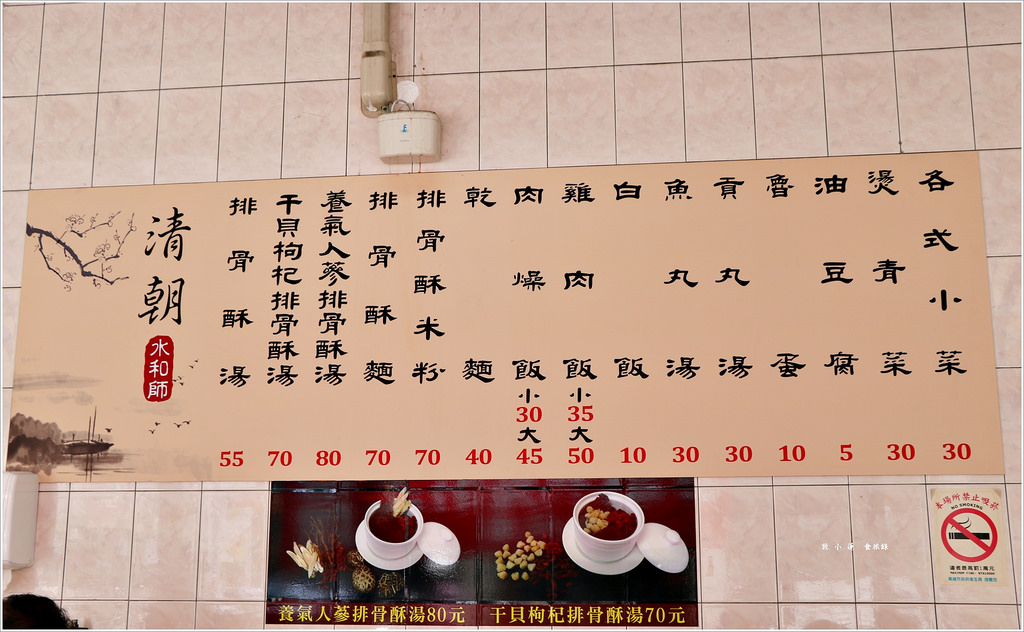 清朝
水和師
排骨酥湯 55
干貝枸杞排骨酥湯 70
養氣人蔘排骨酥湯 80
排骨酥麵 70
排骨酥米粉 70
乾麵 40
肉燥飯 小30 大45
雞肉飯 小35 大50
白飯 10
魚丸湯 30
貢丸湯 30
魯蛋 10
油豆腐 5
燙青菜 30
各式小菜 30
養氣人蔘排骨酥湯80元
干貝枸杞排骨酥湯70元
本場所禁止吸菸
NO SMOKING